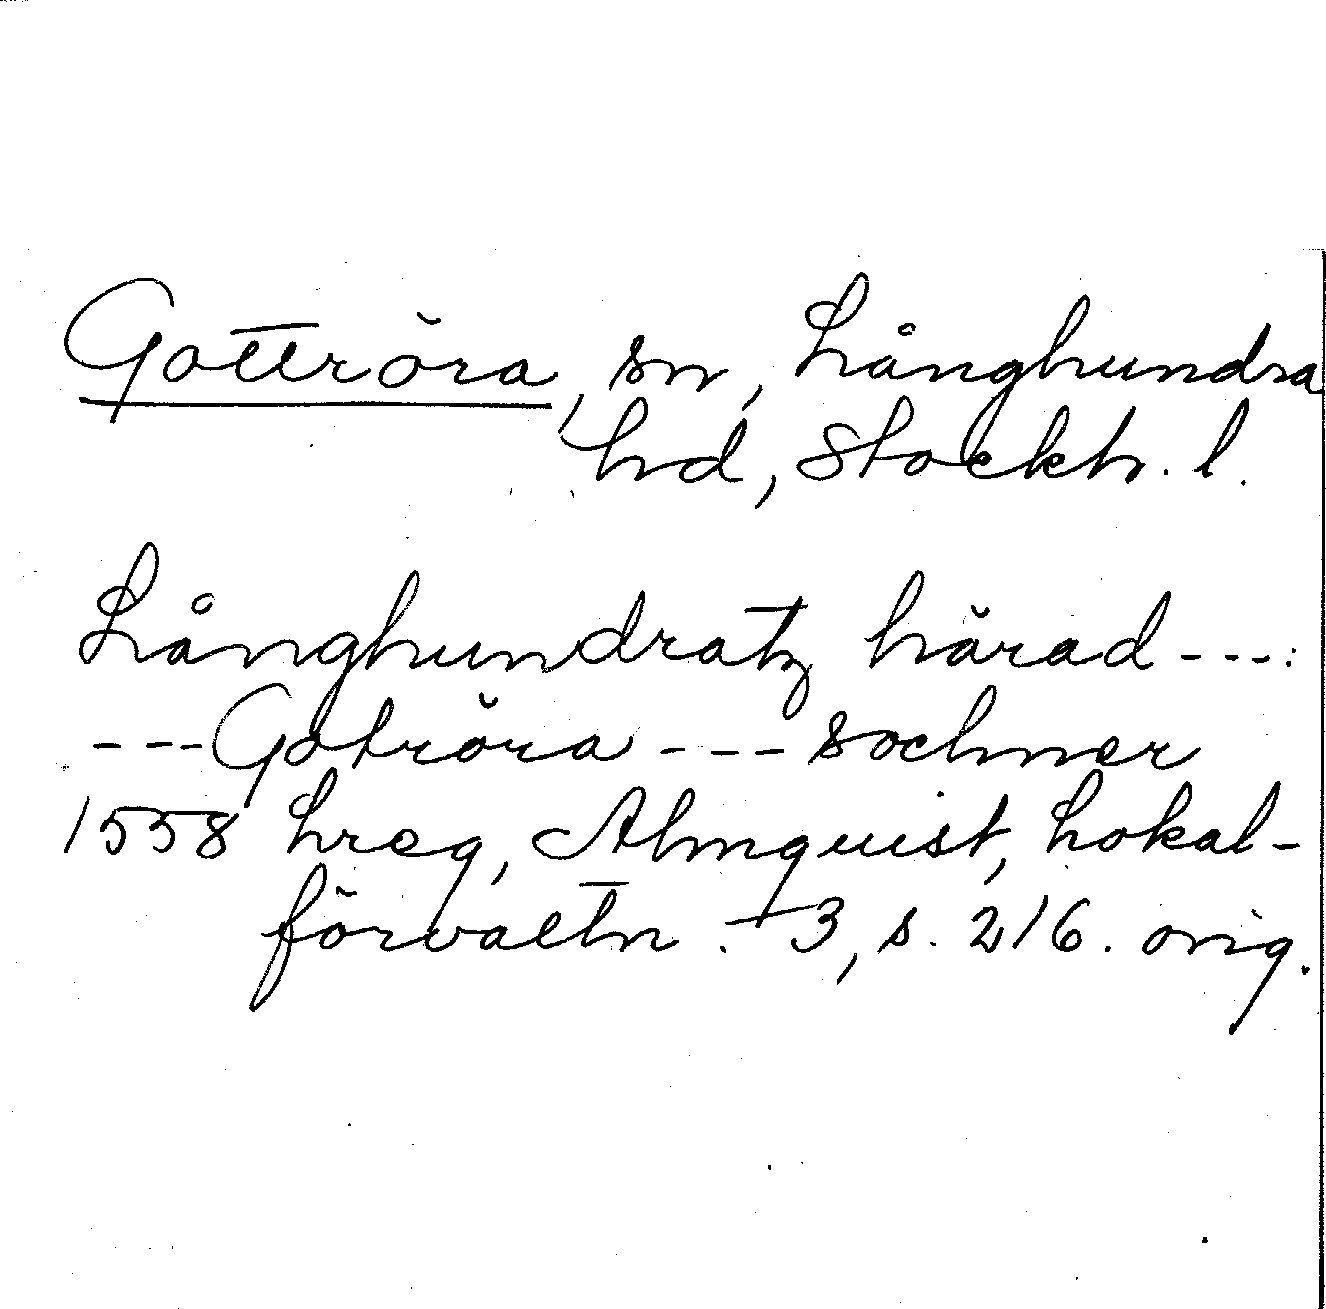 Gottröra, sn, Långhundra
hd, Stockh. l.
Långhundratz härad ---:
--- Gotröra --- sochner
1558 Lreg, Almquist, Lokal-
förvaltn. 3, s. 216. orig.